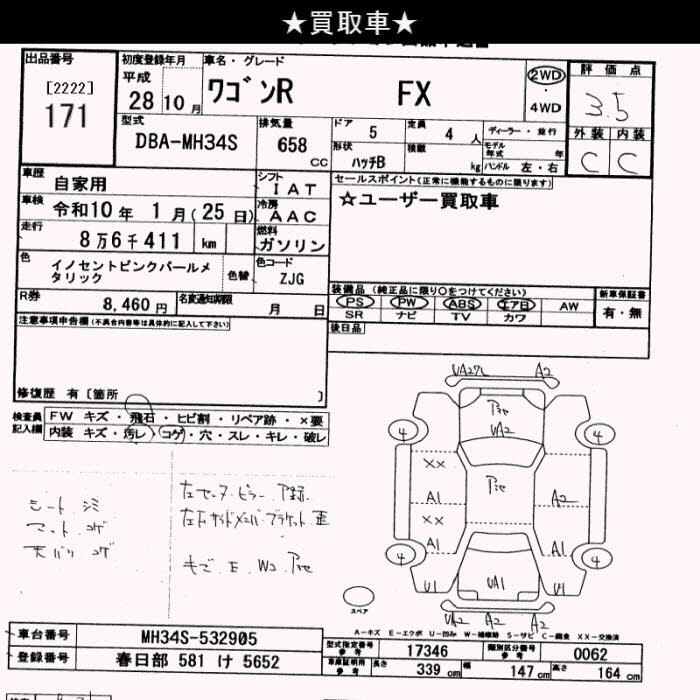 ★買取車★
出品番号
[2222]
171
初度登録年月
平成
28年10月
車名・グレード
ワゴンR FX
2WD
・
4WD
評価点
3.5
外装 内装
C C
型式
DBA-MH34S
排気量
658 cc
ドア 5
定員 4 人
形状 ハッチB
積載 kg
ディーラー・並行
モデル年式 年
ハンドル 左・右
車歴
自家用
シフト
IAT
車検
令和10年 1月(25日)
冷房
AAC
走行
8万6千411 km
燃料
ガソリン
色
イノセントピンクパールメタリック
色替
色コード
ZJG
セールスポイント(正常に機能するものに限ります)
☆ユーザー買取車
R券
8,460円
名変通知期限
月 日
装備品(純正品に限り○をつけてください)
PS PW ABS エアB AW
SR ナビ TV カワ
新車保証書
有・無
後日品
注意事項申告欄(不具合内容等は具体的に記入して下さい)
修復歴 有[箇所 ]
検査員
記入欄
FW キズ・飛石・ヒビ割・リペア跡・×要
内装 キズ・汚レ・コゲ・穴・スレ・キレ・破レ
シート シミ
マット コゲ
天バリ コゲ
UA27L A2
UA2
4 4
XX
A1
XX
A1
A2
A1
4 4
U1 UA1 U1
UA2 A2 A2
スペア
A-キズ E-エクボ U-凹み W-補修跡 S-サビ C-腐食 XX-交換済
車台番号 MH34S-532905
登録番号 春日部 581 け 5652
型式指定番号 参考 17346
類別区分番号 参考 0062
車庫証明用 参考 長さ 339 cm 幅 147 cm 高さ 164 cm